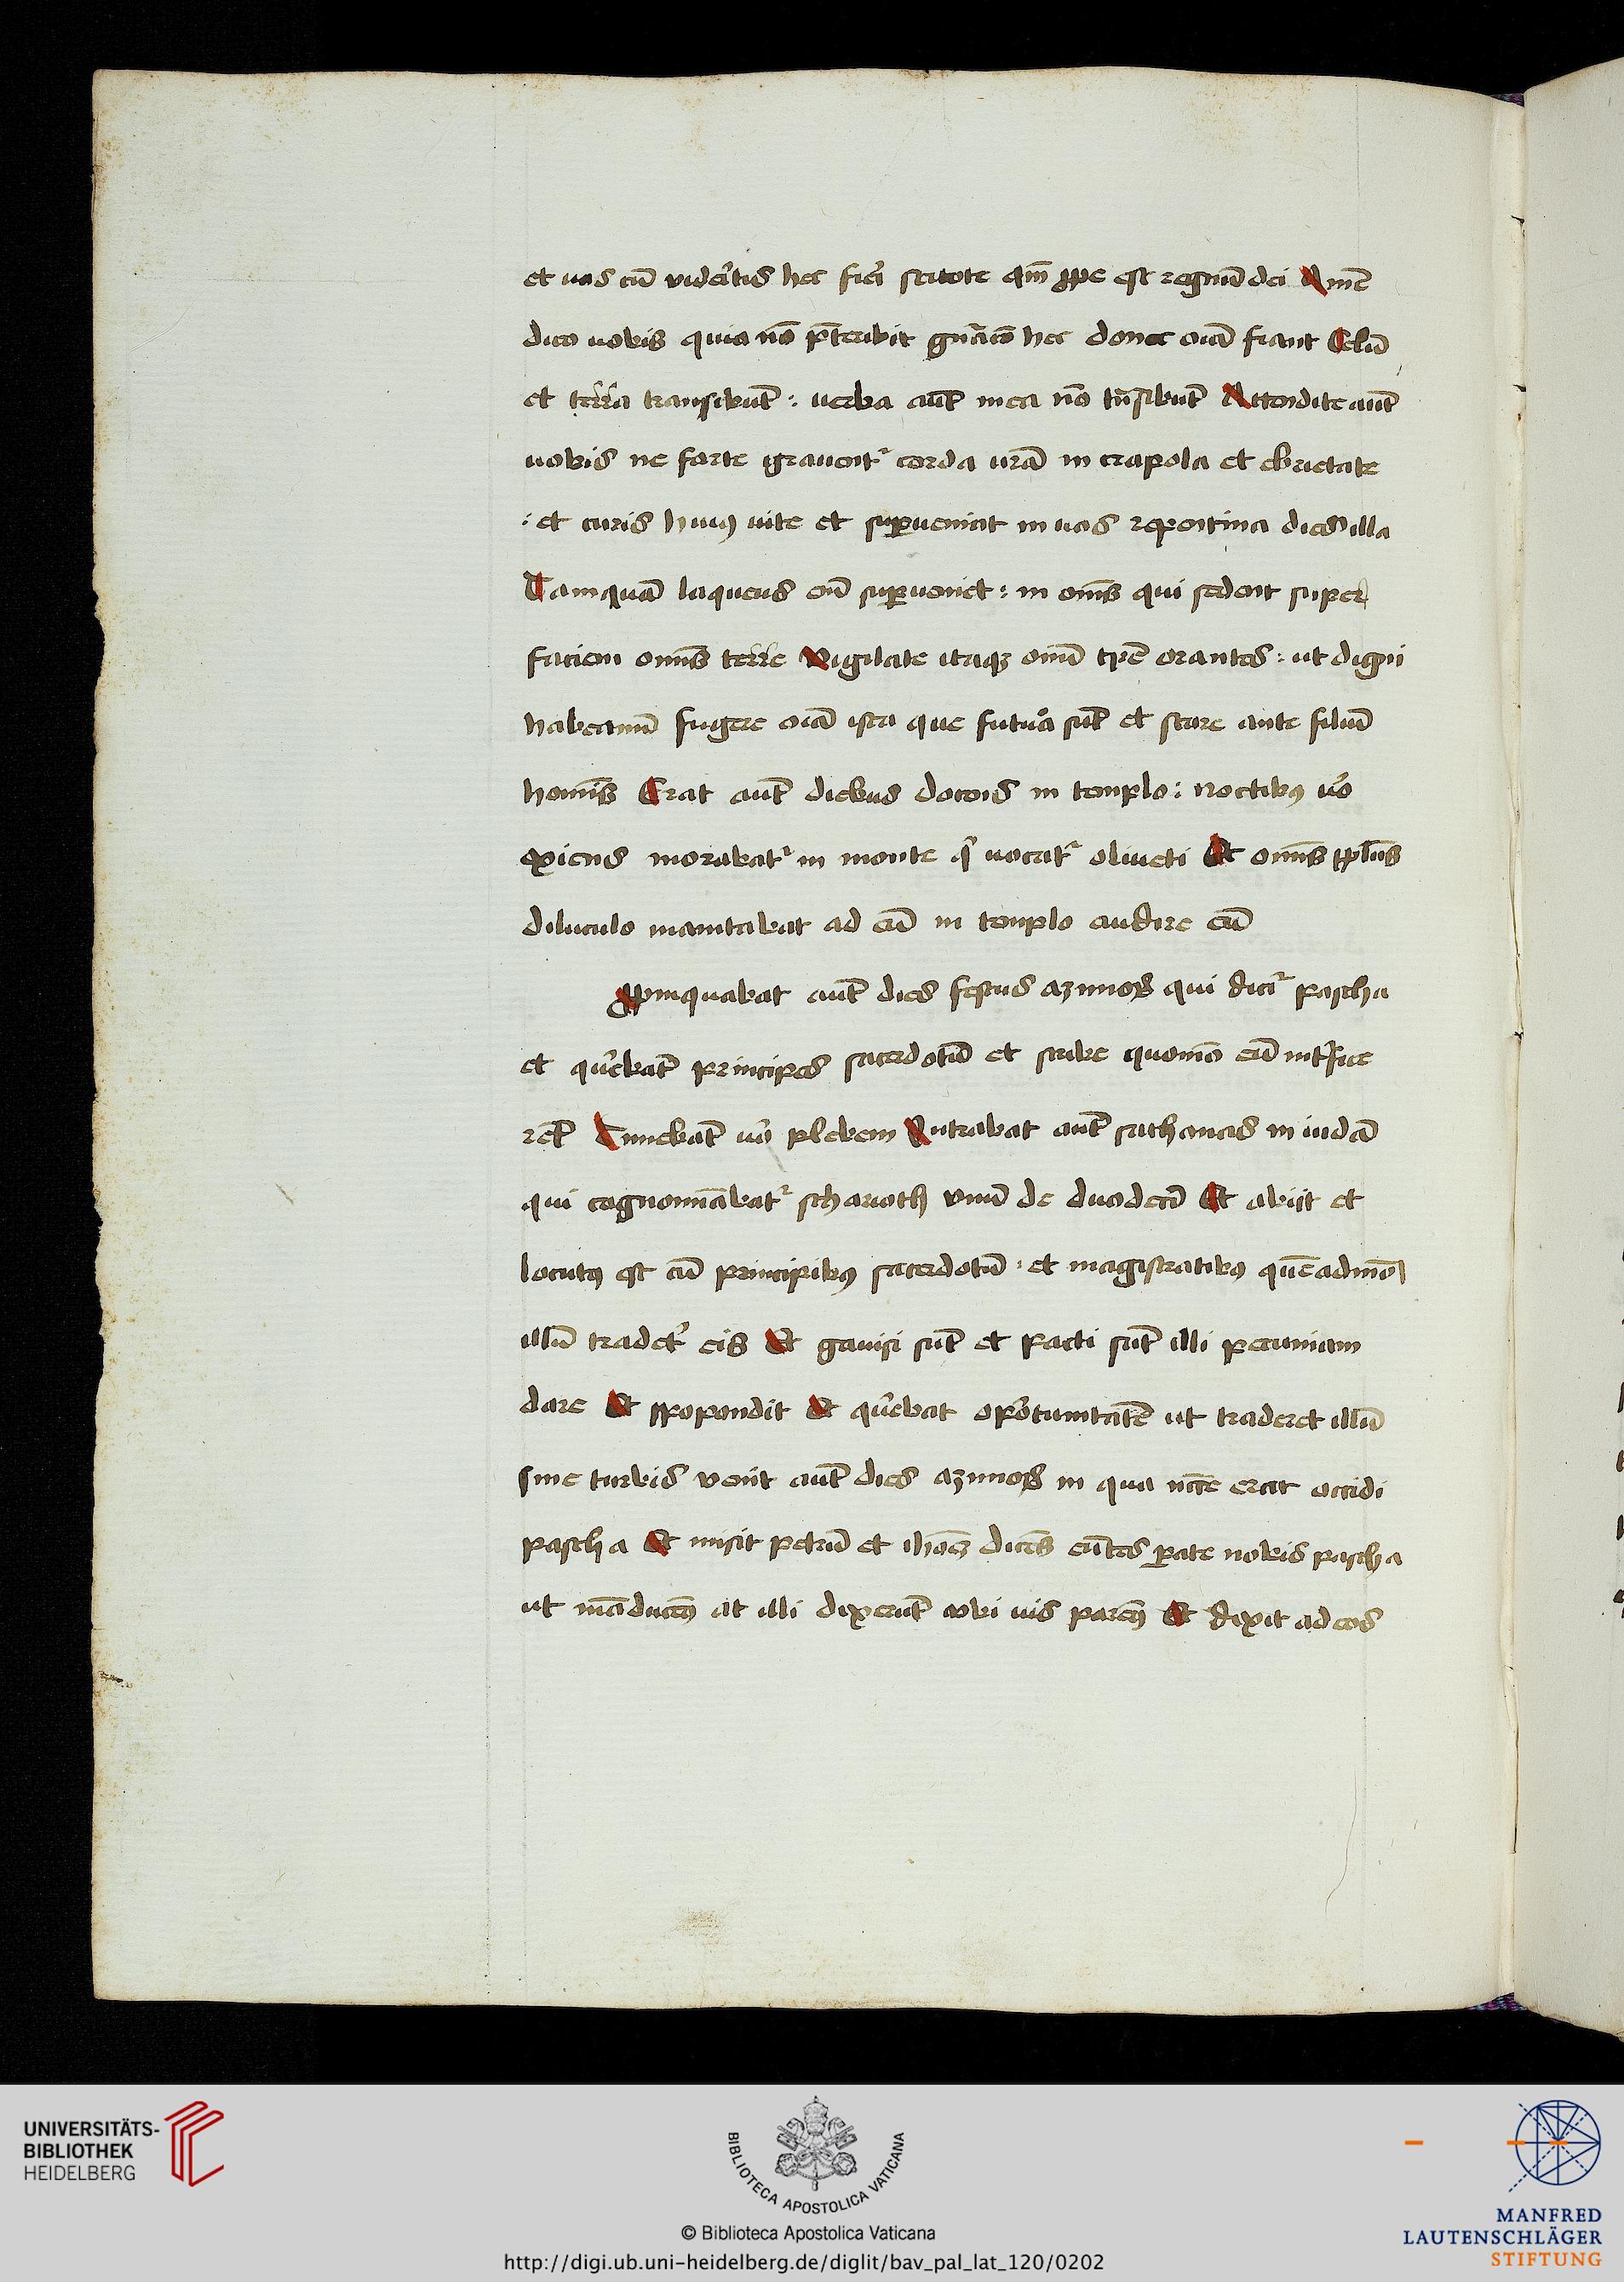 et uos cū vidēitis hec fiēi scitote qm̄ ꝓpe est regnū dei Amē
dico uobis quia nō p̄teribit gn̄acō hec donec oīa fiant Celū
et terra transibūt : uerba aūt mea nō tn̄sibūt Attendite aūt
uobis ne forte grauentᷣ corda ur̄a in crapola et ebrietate
: et curis huiꝯ uite et suꝑueniat in uos repentina dies illa
Tamquā laqueus eīn suꝑueniet : in om̄s qui sedent super
faciem om̄is terre Vigilate itaqꝫ om̄i tp̄e orantes : ut digni
habeamī fugere oīa ista que futu᷑a sūt et stare ante filiū
homīs Erat aūt diebus docens in templo : noctibꝯ uo᷑
exiens morabatᷣ in monte q᷑ uocatᷣ oliueti Et om̄is ppl̄us
diluculo manicabat ad eū in templo audire eū
Aꝓpinquabat aūt dies festus azimoꝝ qui dicitᷣ pascha
et qu᷑ebāt principes sacerdotū et scribe quomō eū int᷑fice
rēt Timebāt uo᷑ plebem Intrabat aūt sathanas in iudā
qui cognomīabatᷣ schariоth vnū de duodecī Et abiit et
locutꝯ est cū principibꝯ sacerdotū · et magistratibꝯ quēadmō
illū tradet᷑ eis Et gauisi sūt et pacti sūt illi pecuniam
dare Et spopondit Et qu᷑ebat opo᷑tunitatē ut traderet illū
sine turbis venit aūt dies azimoꝝ in qua nc̄ce erat occidi
pascha Et misit petrū et ihoēꝫ dicēs eūtes ꝑate nobis pascha
ut māducemꝯ at illi dixerūt vbi uis paremꝯ Et dixit ad eos
UNIVERSITÄTS-
BIBLIOTHEK
HEIDELBERG
BIBLIOTECA APOSTOLICA VATICANA
© Biblioteca Apostolica Vaticana
http://digi.ub.uni-heidelberg.de/diglit/bav_pal_lat_120/0202
MANFRED
LAUTENSCHLÄGER
STIFTUNG